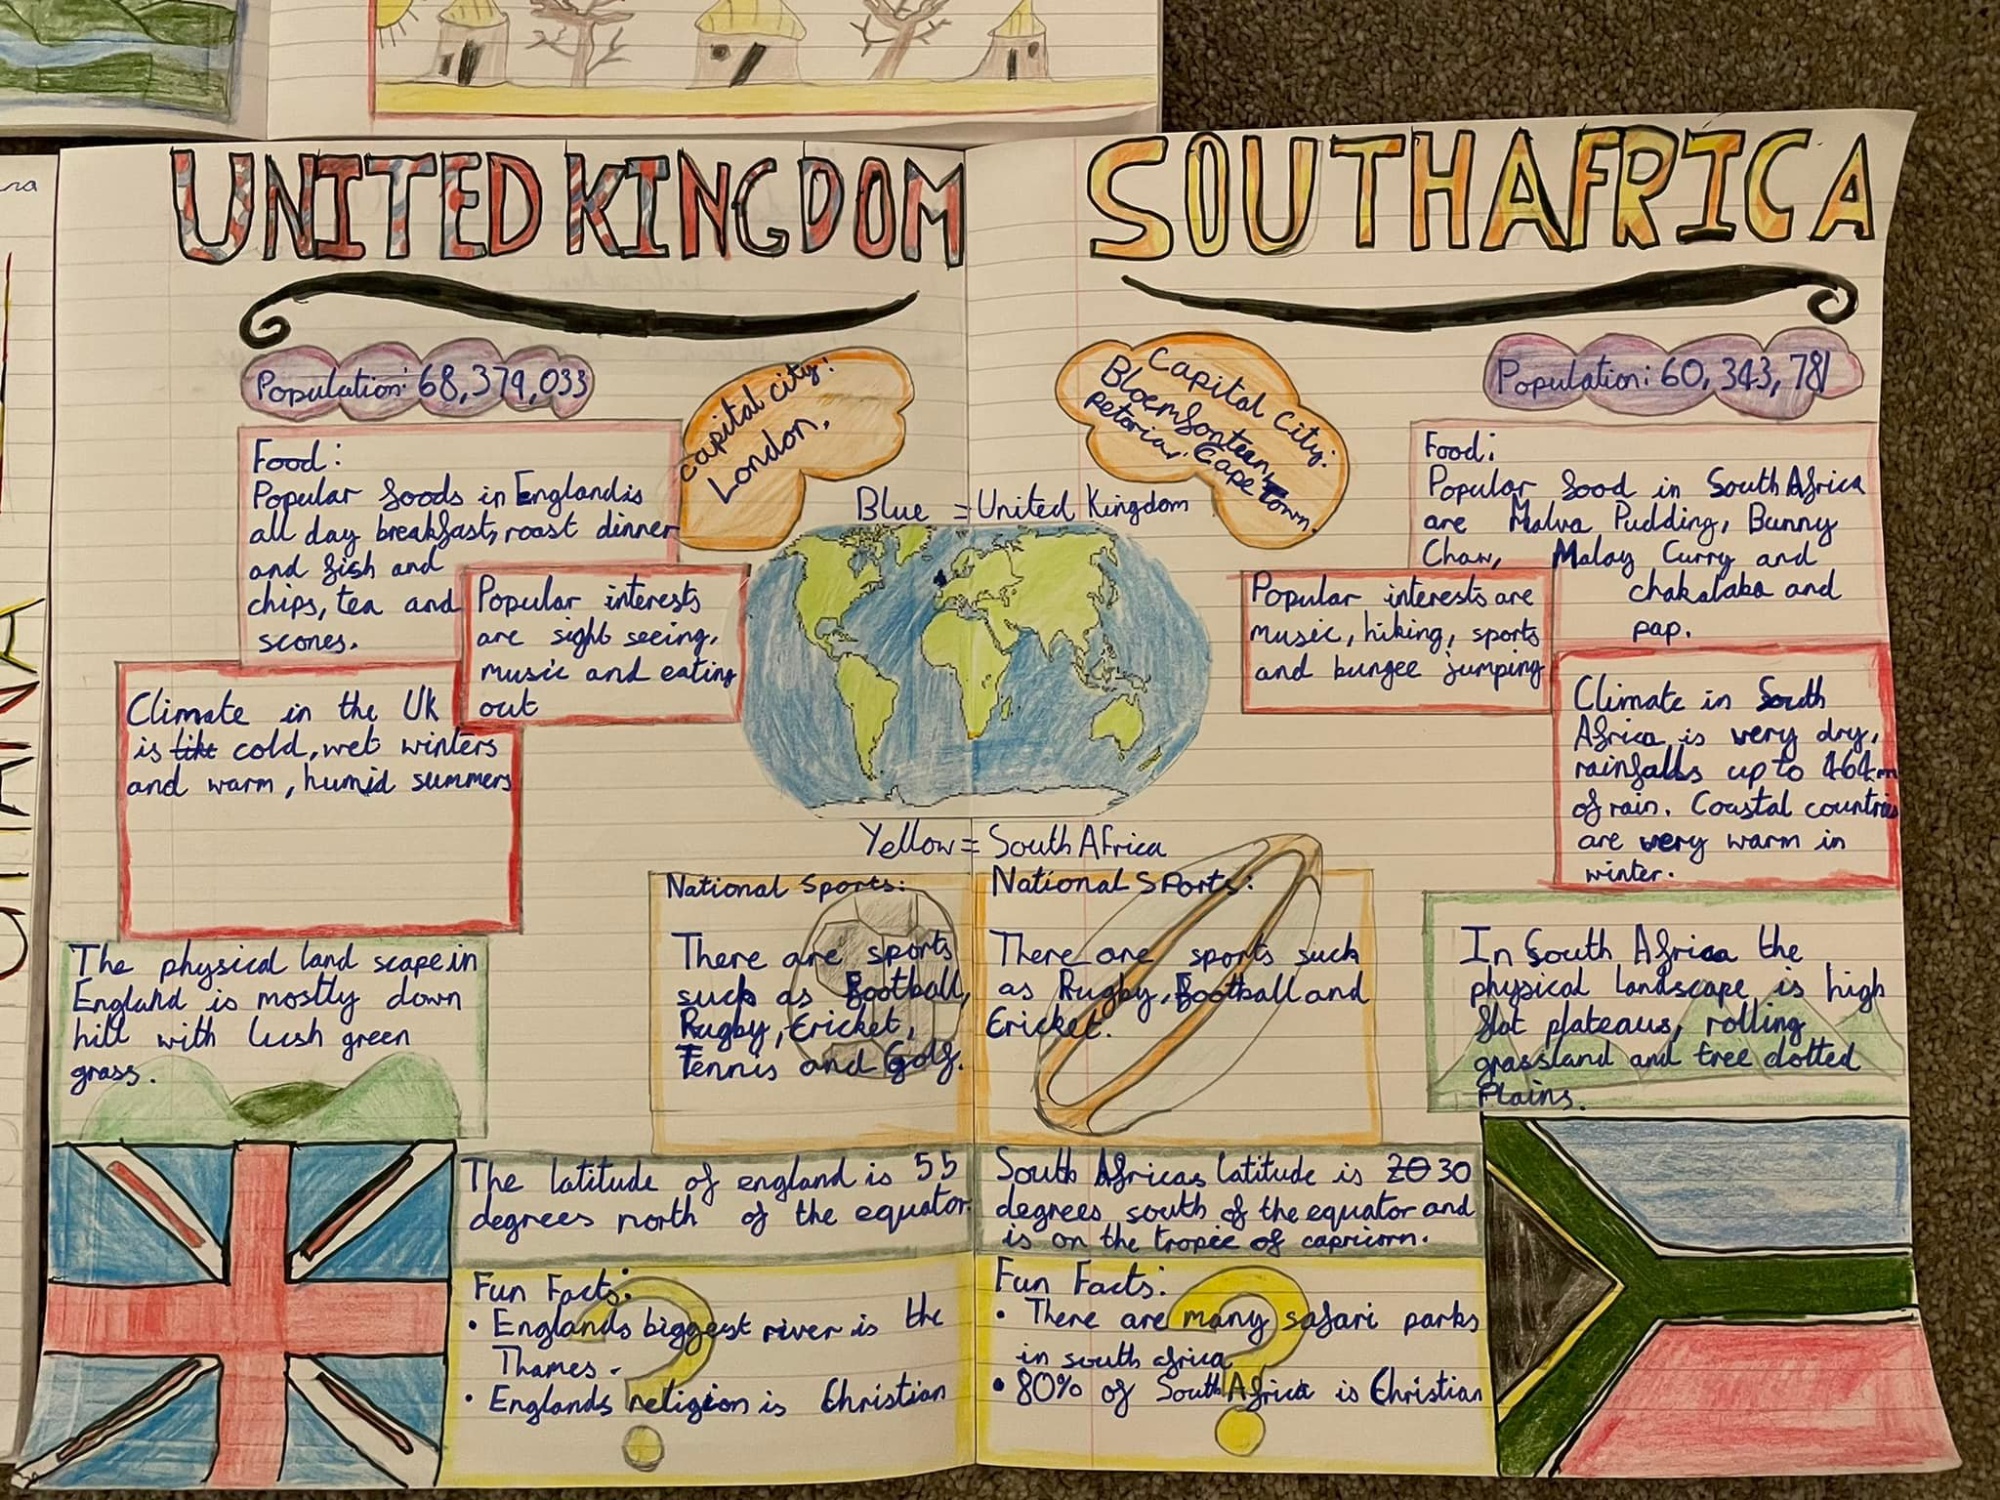 UNITED KINGDOM
Population: 68,379,033
capital city:
London.
Food:
Popular foods in England is
all day breakfast, roast dinner
and fish and
chips, tea and
scones.
Popular interests
are sight seeing,
music and eating
out
Climate in the UK
is like cold, wet winters
and warm, humid summers
The physical land scape in
England is mostly down
hill with lush green
grass.
National Sports:
There are sports
such as Football,
Rugby, Cricket,
Tennis and Golf.
The latitude of england is 55
degrees north of the equator.
Fun Facts:
• Englands biggest river is the
Thames.
• Englands religion is Christian
Blue = United Kingdom
Yellow = South Africa
SOUTH AFRICA
Capital City:
Bloemfonteen,
Petoria, Cape town.
Population: 60,343,781
Food:
Popular food in South Africa
are Malva Pudding, Bunny
Chow, Malay Curry and
chakalaka and
pap.
Popular interests are
music, hiking, sports
and bungee jumping
Climate in South
Africa is very dry,
rainfalls up to 464mm
of rain. Coastal countries
are very warm in
winter.
National Sports:
There are sports such
as Rugby, Football and
Cricket.
In South Africa the
physical landscape is high
flat plateaus, rolling
grassland and tree dotted
Plains.
South Africas latitude is 20 30
degrees south of the equator and
is on the tropic of capricorn.
Fun Facts:
• There are many safari parks
in south africa
• 80% of South Africa is Christian